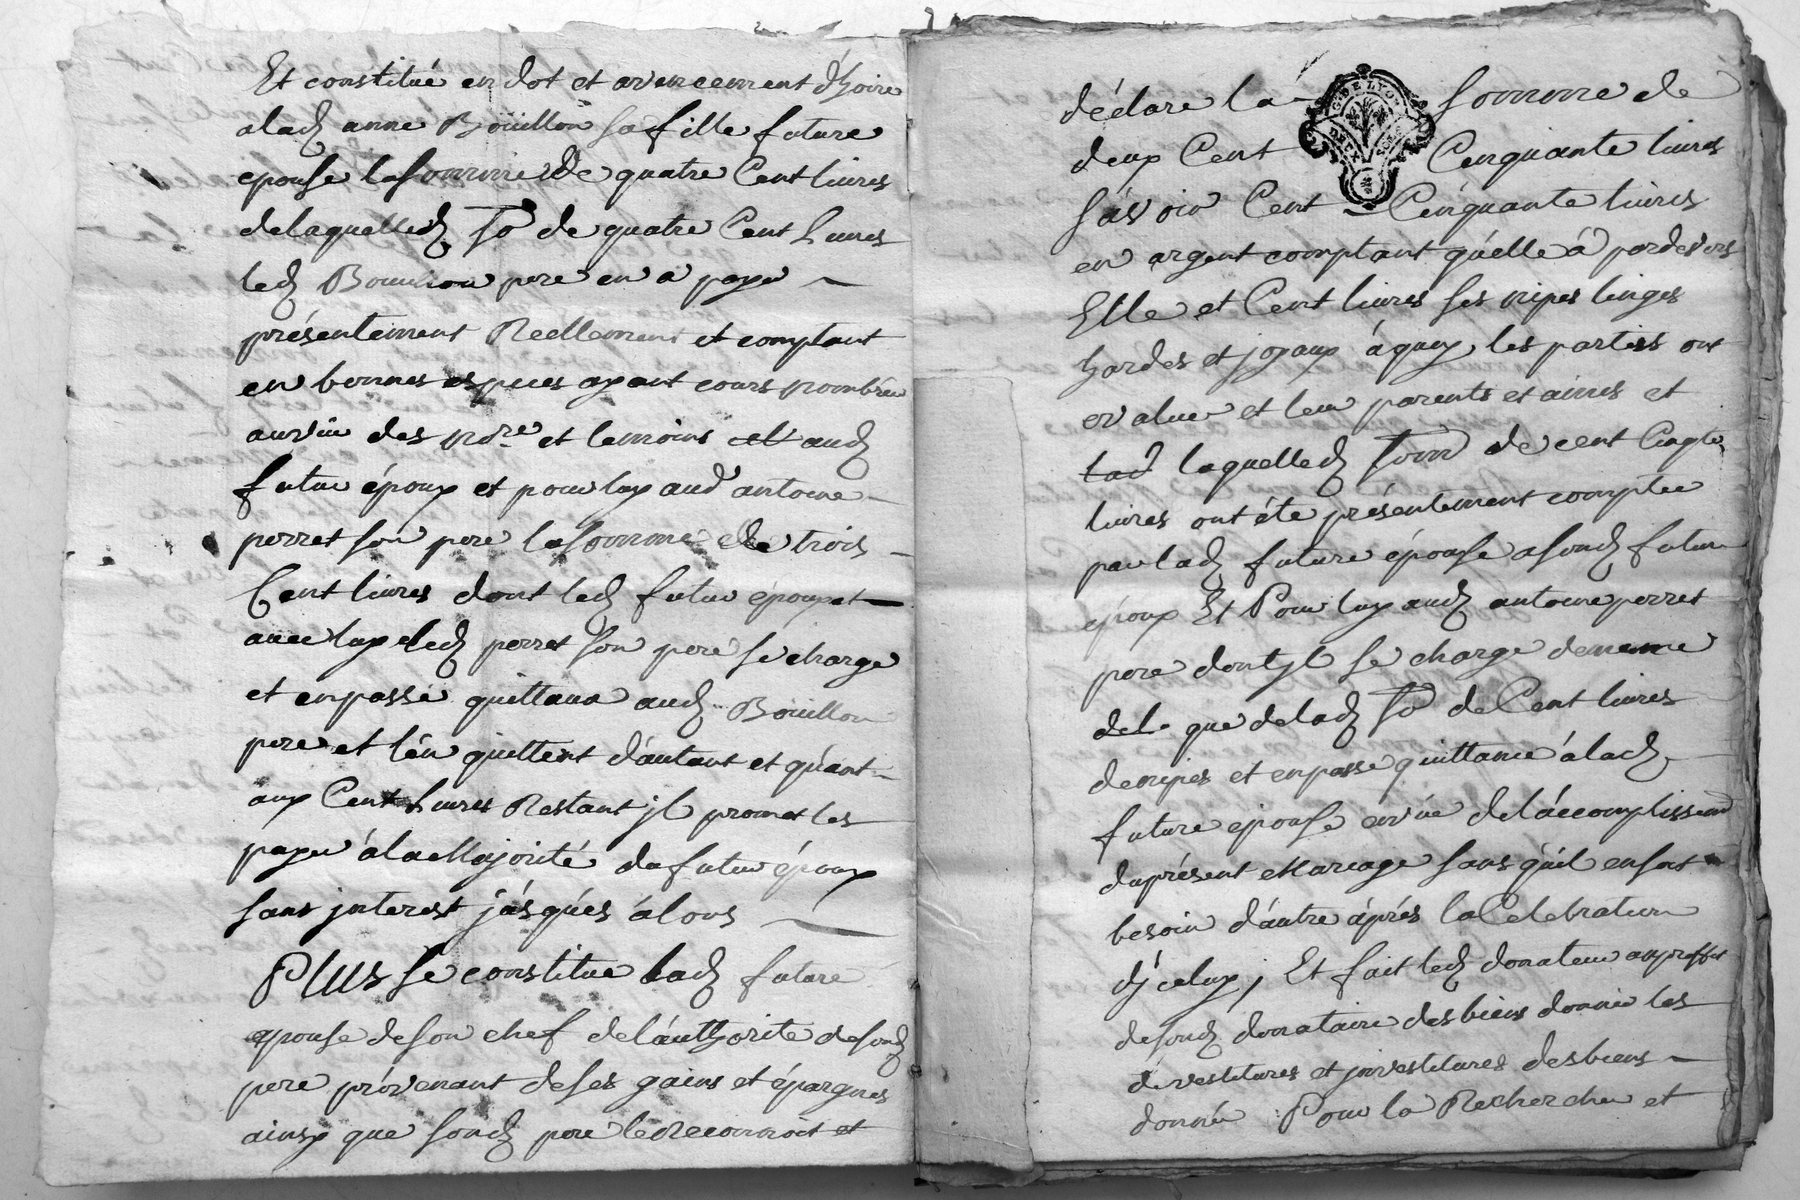 Et constitué en dot et avencement d'hoire
alad anne Boüillon sa fille future
epouse la somme de quatre Cent livres
de laquelled so de quatre Cent livres
led Bouillon pere en a payé
présentement Reellement et comptant
en bonnes especes ayant cours nombrée
au vüe des nore et temoins et aud
futur époux et pour luy aud antoine
perret son pere la somme de trois
Cent livres dont led futur époux et
avec luy led perret son pere se charge
et en passe quittance aud Boüillon
pere et l'en quittent d'autant et quant
aux Cent livres Restant jl promet les
payer á la Majorité du futur époux
sans jnterest jusques álors
PLUS se constitue lad future
epouse de son chef de l'authorité de sond
pere provenant de ses gains et épargnes
ainsy que sond pere le Reconnoit et
déclare la somme de
deux Cent Cinquante livres
sávoir Cent Cinquante livres
en argent comptant qu'elle á pardevers
Elle et Cent livres ses nipes linges
hardes et joyaux áquoy les parties ont
evaluer et leur parents et aimes et
lad laquelled som de cent Cinqte
livres ont éte présentement comptée
par lad future épouse a sond futur
époux Et Pour luy aud antoine perret
pere dont jl se charge de meme
de la que de lad so de Cent livres
de nipes et en passe quittance álad
future epouse en vüe de l'áccomplissemt
du présent Mariage sans qu'il en soit
besoin d'autre áprés la Celebration
d'jceluy, Et fait led donateur au proffit
de sond donataire des biens donnés les
devestitures et jnvestitures des biens
donnés Pour la Rechercher et